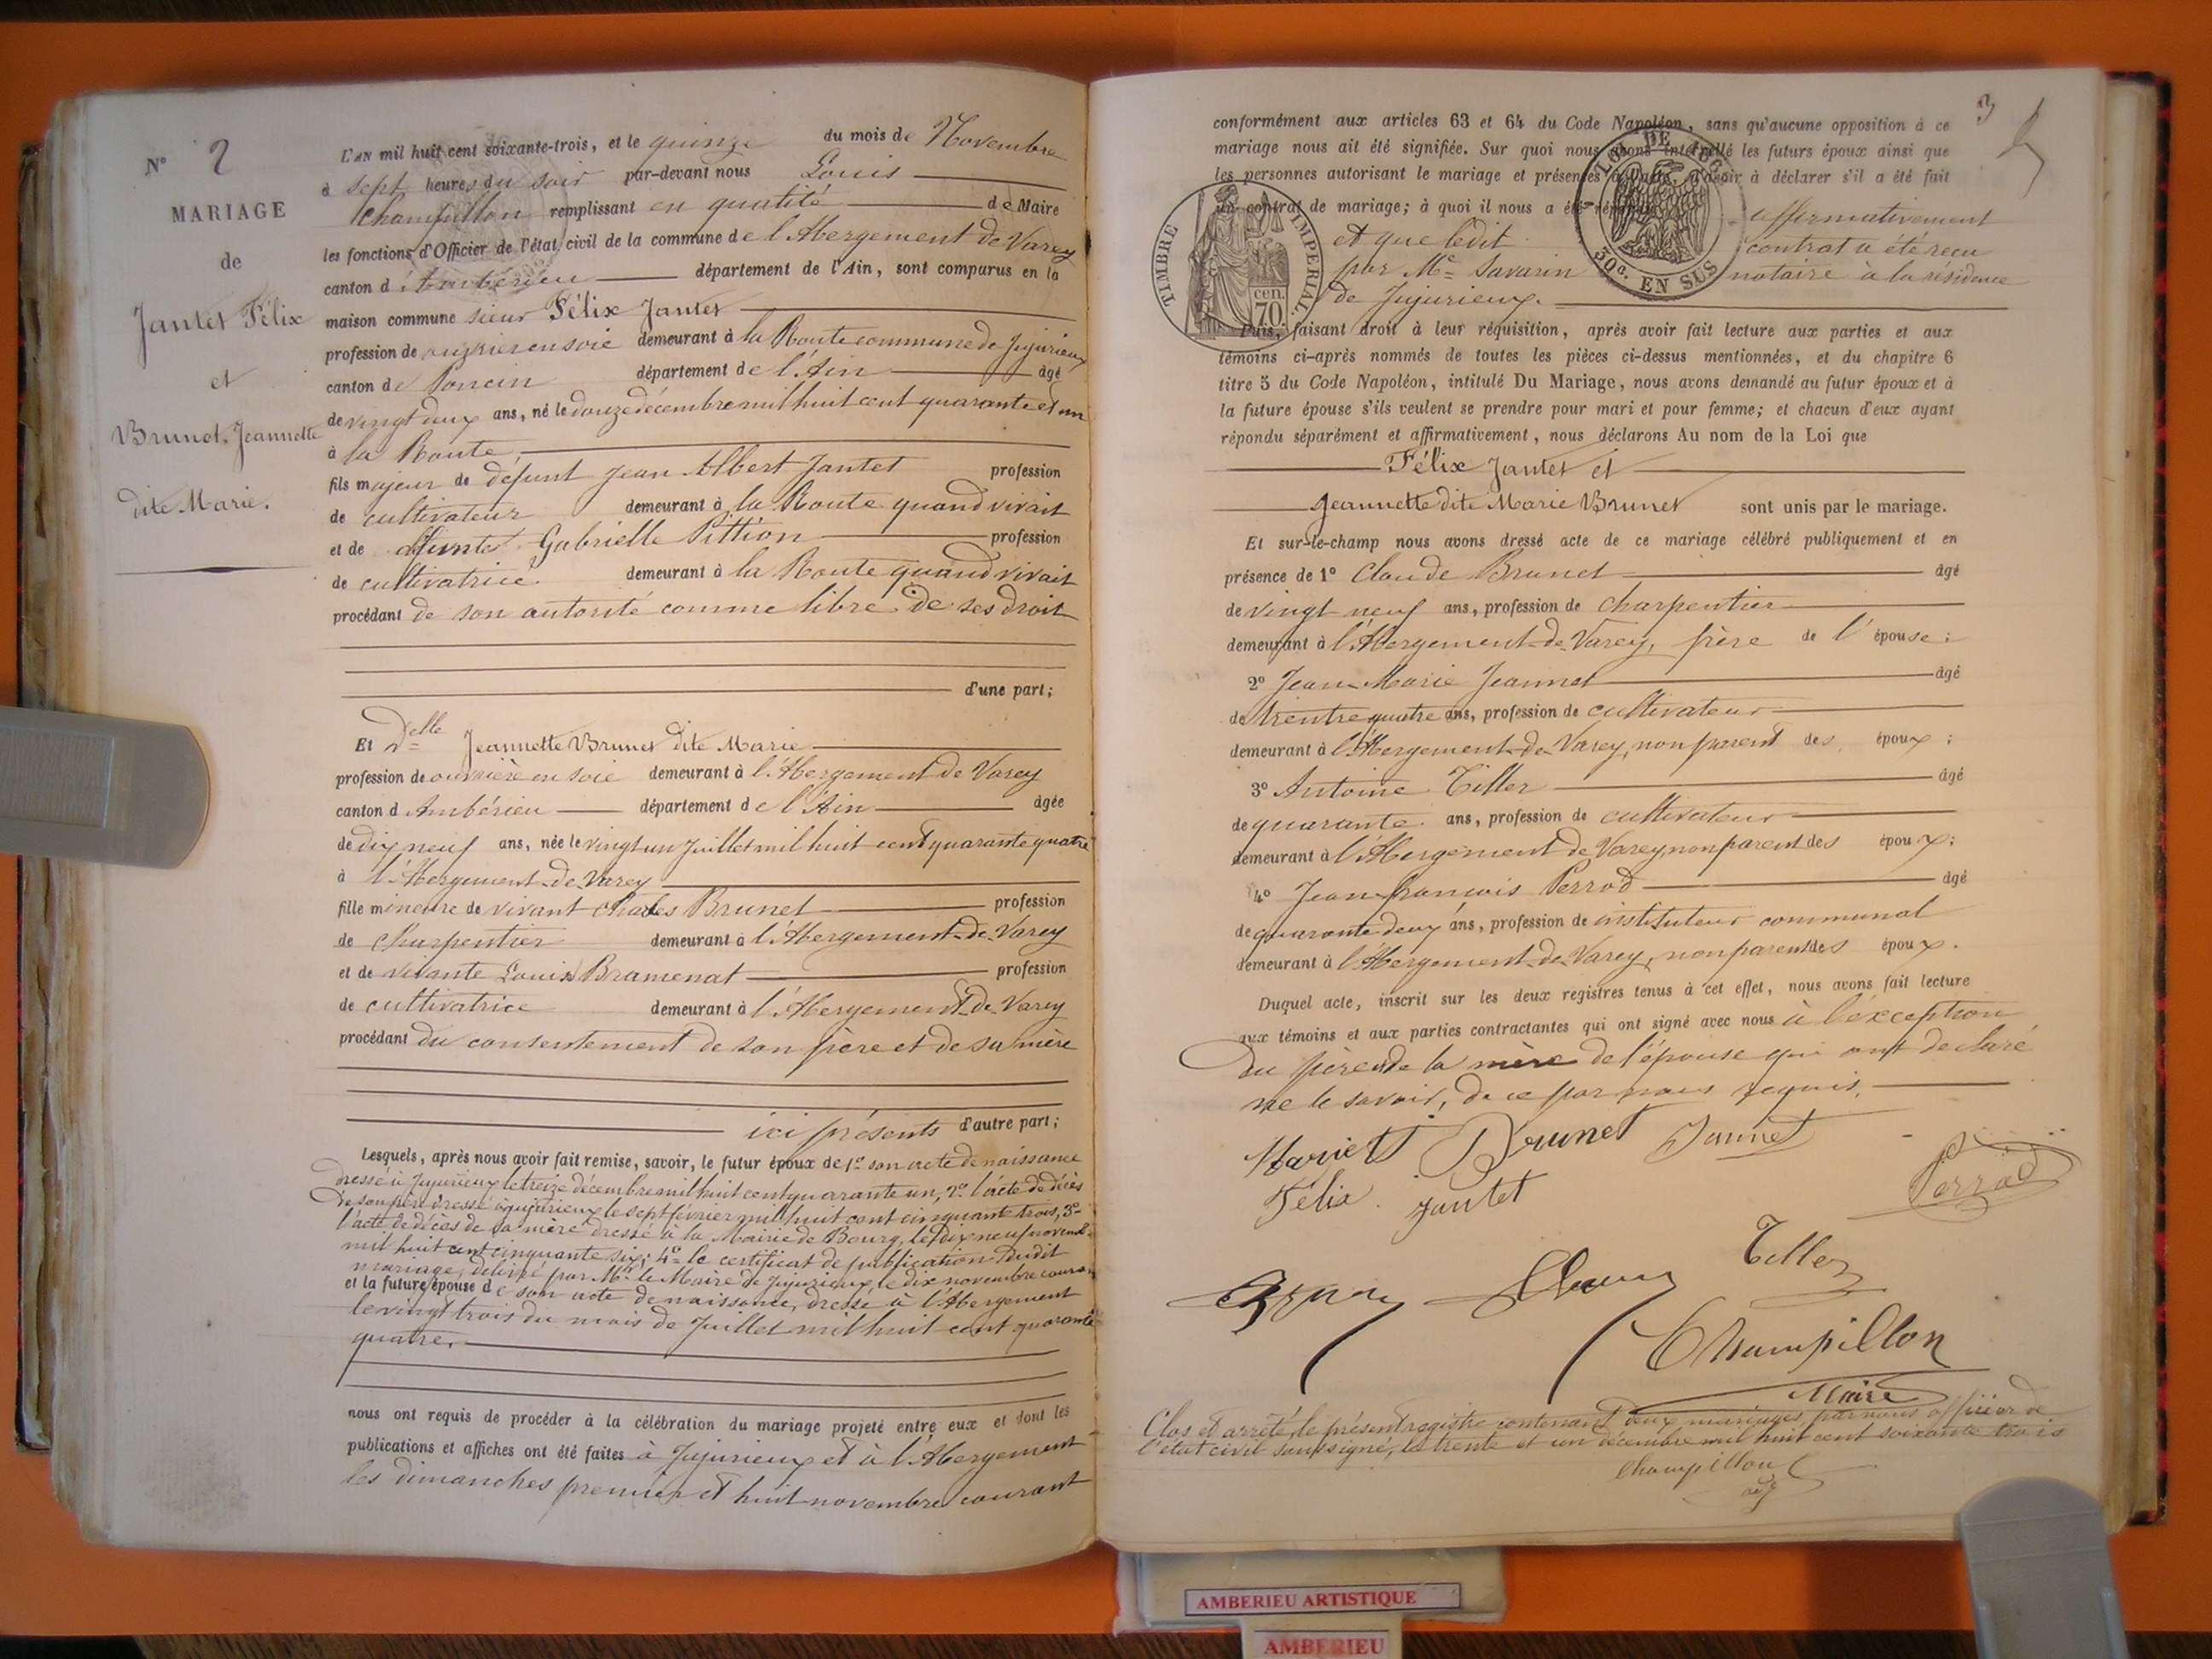 N° 2
MARIAGE
de
Jantet Félix
et
Brunet, Jeannette
dite Marie.
L'AN mil huit cent soixante-trois, et le quinze du mois de Novembre
à sept heures du soir par-devant nous Louis
Champillon remplissant en qualité de Maire
les fonctions d'Officier de l'état civil de la commune de l'Abergement de Varey
canton d'Ambérieu département de l'Ain, sont comparus en la
maison commune sieur Félix Jantet
profession de ouvrier en soie demeurant à la Route commune de Jujurieux
canton de Poncin département de l'Ain âgé
de vingt deux ans, né le douze décembre mil huit cent quarante et un
à la Route,
fils majeur de défunt Jean Albert Jantet profession
de cultivateur demeurant à la Route quand vivait
et de défunte Gabrielle Pittion profession
de cultivatrice demeurant à la Route quand vivait
procédant de son autorité comme libre de ses droit
d'une part;
Et Delle Jeannette Brunet dite Marie
profession de ouvrière en soie demeurant à l'Abergement de Varey
canton d Ambérieu département de l'Ain âgée
de dix neuf ans, née le vingt un Juillet mil huit cent quarante quatre
à l'Abergement-de-Varey
fille mineure de vivant Charles Brunet profession
de Charpentier demeurant à l'Abergement-de-Varey
et de vivante Louise Bramenat profession
de cultivatrice demeurant à l'Abergement-de-Varey
procédant du consentement de son père et de sa mère
ici présents d'autre part;
Lesquels, après nous avoir fait remise, savoir, le futur époux de 1° son acte de naissance
dressé à Jujurieux le treize décembre mil huit cent quarante un, 2° l'acte de décès
de son père dressé à Jujurieux le sept février mil huit cent cinquante trois, 3°
l'acte de décès de sa mère dressé à la Mairie de Bourg, le dix neuf novemb.
mil huit cent cinquante six; 4° le certificat de publication dudit
mariage, délivré par Mr le Maire de Jujurieux le dix novembre couran
et la future épouse de son acte de naissance, dressé à l'Abergement
le vingt trois du mois de Juillet mil huit cent quarante
quatre.
nous ont requis de procéder à la célébration du mariage projeté entre eux et dont les
publications et affiches ont été faites à Jujurieux et à l'Abergement
les dimanches premier et huit novembre courant
3
conformément aux articles 63 et 64 du Code Napoléon, sans qu'aucune opposition à ce
mariage nous ait été signifiée. Sur quoi nous avons interpellé les futurs époux ainsi que
les personnes autorisant le mariage et présentes à l'acte, d'avoir à déclarer s'il a été fait
un contrat de mariage; à quoi il nous a été répondu affirmativement
et que ledit contrat a été reçu
par Me Savarin notaire à la résidence
de Jujurieux.
TIMBRE IMPERIAL
cen. 70
LOI DE
30c. EN SUS
Puis, faisant droit à leur réquisition, après avoir fait lecture aux parties et aux
témoins ci-après nommés de toutes les pièces ci-dessus mentionnées, et du chapitre 6
titre 5 du Code Napoléon, intitulé Du Mariage, nous avons demandé au futur époux et à
la future épouse s'ils veulent se prendre pour mari et pour femme; et chacun d'eux ayant
répondu séparément et affirmativement, nous déclarons Au nom de la Loi que
Félix Jantet et
Jeannette dite Marie Brunet sont unis par le mariage.
Et sur-le-champ nous avons dressé acte de ce mariage célébré publiquement et en
présence de 1° Claude Brunet âgé
de vingt neuf ans, profession de charpentier
demeurant à l'Abergement-de-Varey, frère de l'épouse;
2° Jean-Marie Jeannet âgé
de trentre quatre ans, profession de cultivateur
demeurant à l'Abergement-de-Varey, non parent des époux;
3° Antoine Tiller âgé
de quarante ans, profession de cultivateur
demeurant à l'Abergement de Varey non parent des époux;
4° Jean-françois Perrod âgé
de quarante deux ans, profession de instituteur communal
demeurant à l'Abergement-de-Varey, non parent des époux.
Duquel acte, inscrit sur les deux registres tenus à cet effet, nous avons fait lecture
aux témoins et aux parties contractantes qui ont signé avec nous à l'exception
du père et de la mère de l'épouse qui ont déclaré
ne le savoir, de ce par nous requis.
Mariett Brunet Jannet
Félix Jantet Perrod
Tiller
Champillon
Maire
Clos et arrêté, le présent registre contenant deux mariages, par nous officier de
l'état civil soussigné, le trente et un décembre mil huit cent soixante trois
Champillon
AMBERIEU ARTISTIQUE
AMBERIEU